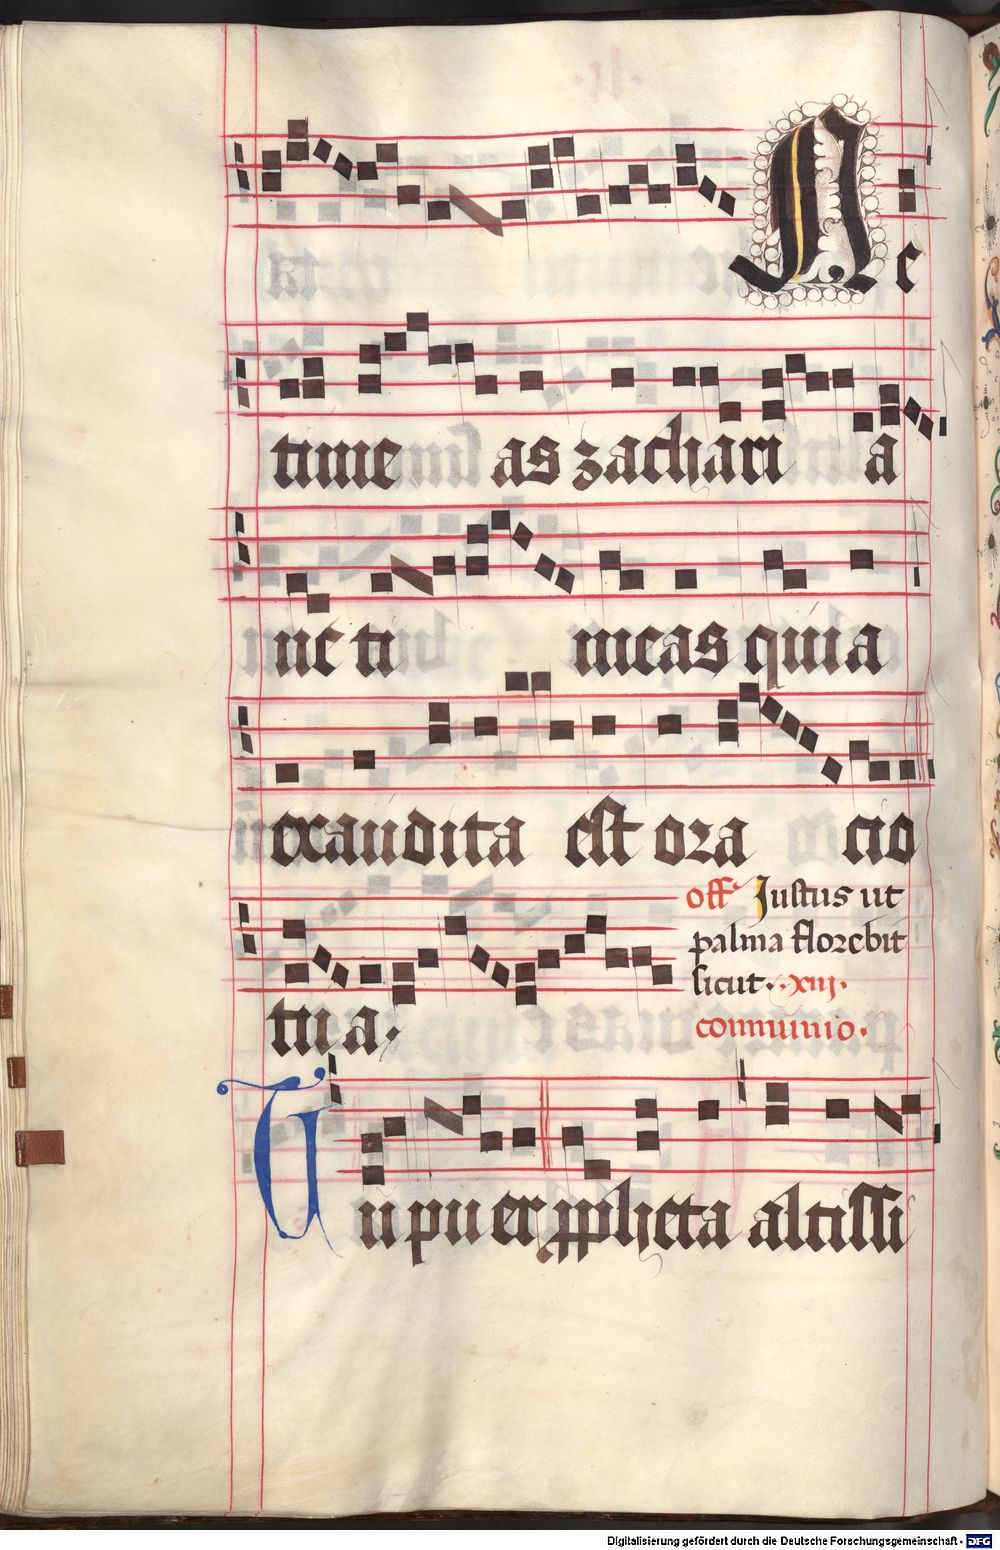 Ne
time as zachari a
ne ti meas quia
exaudita est ora cio
off Justus ut
palma florebit
sicut · xiij ·
communio ·
tu a ·
Tu puer ppheta altissi
Digitalisierung gefördert durch die Deutsche Forschungsgemeinschaft - DFG